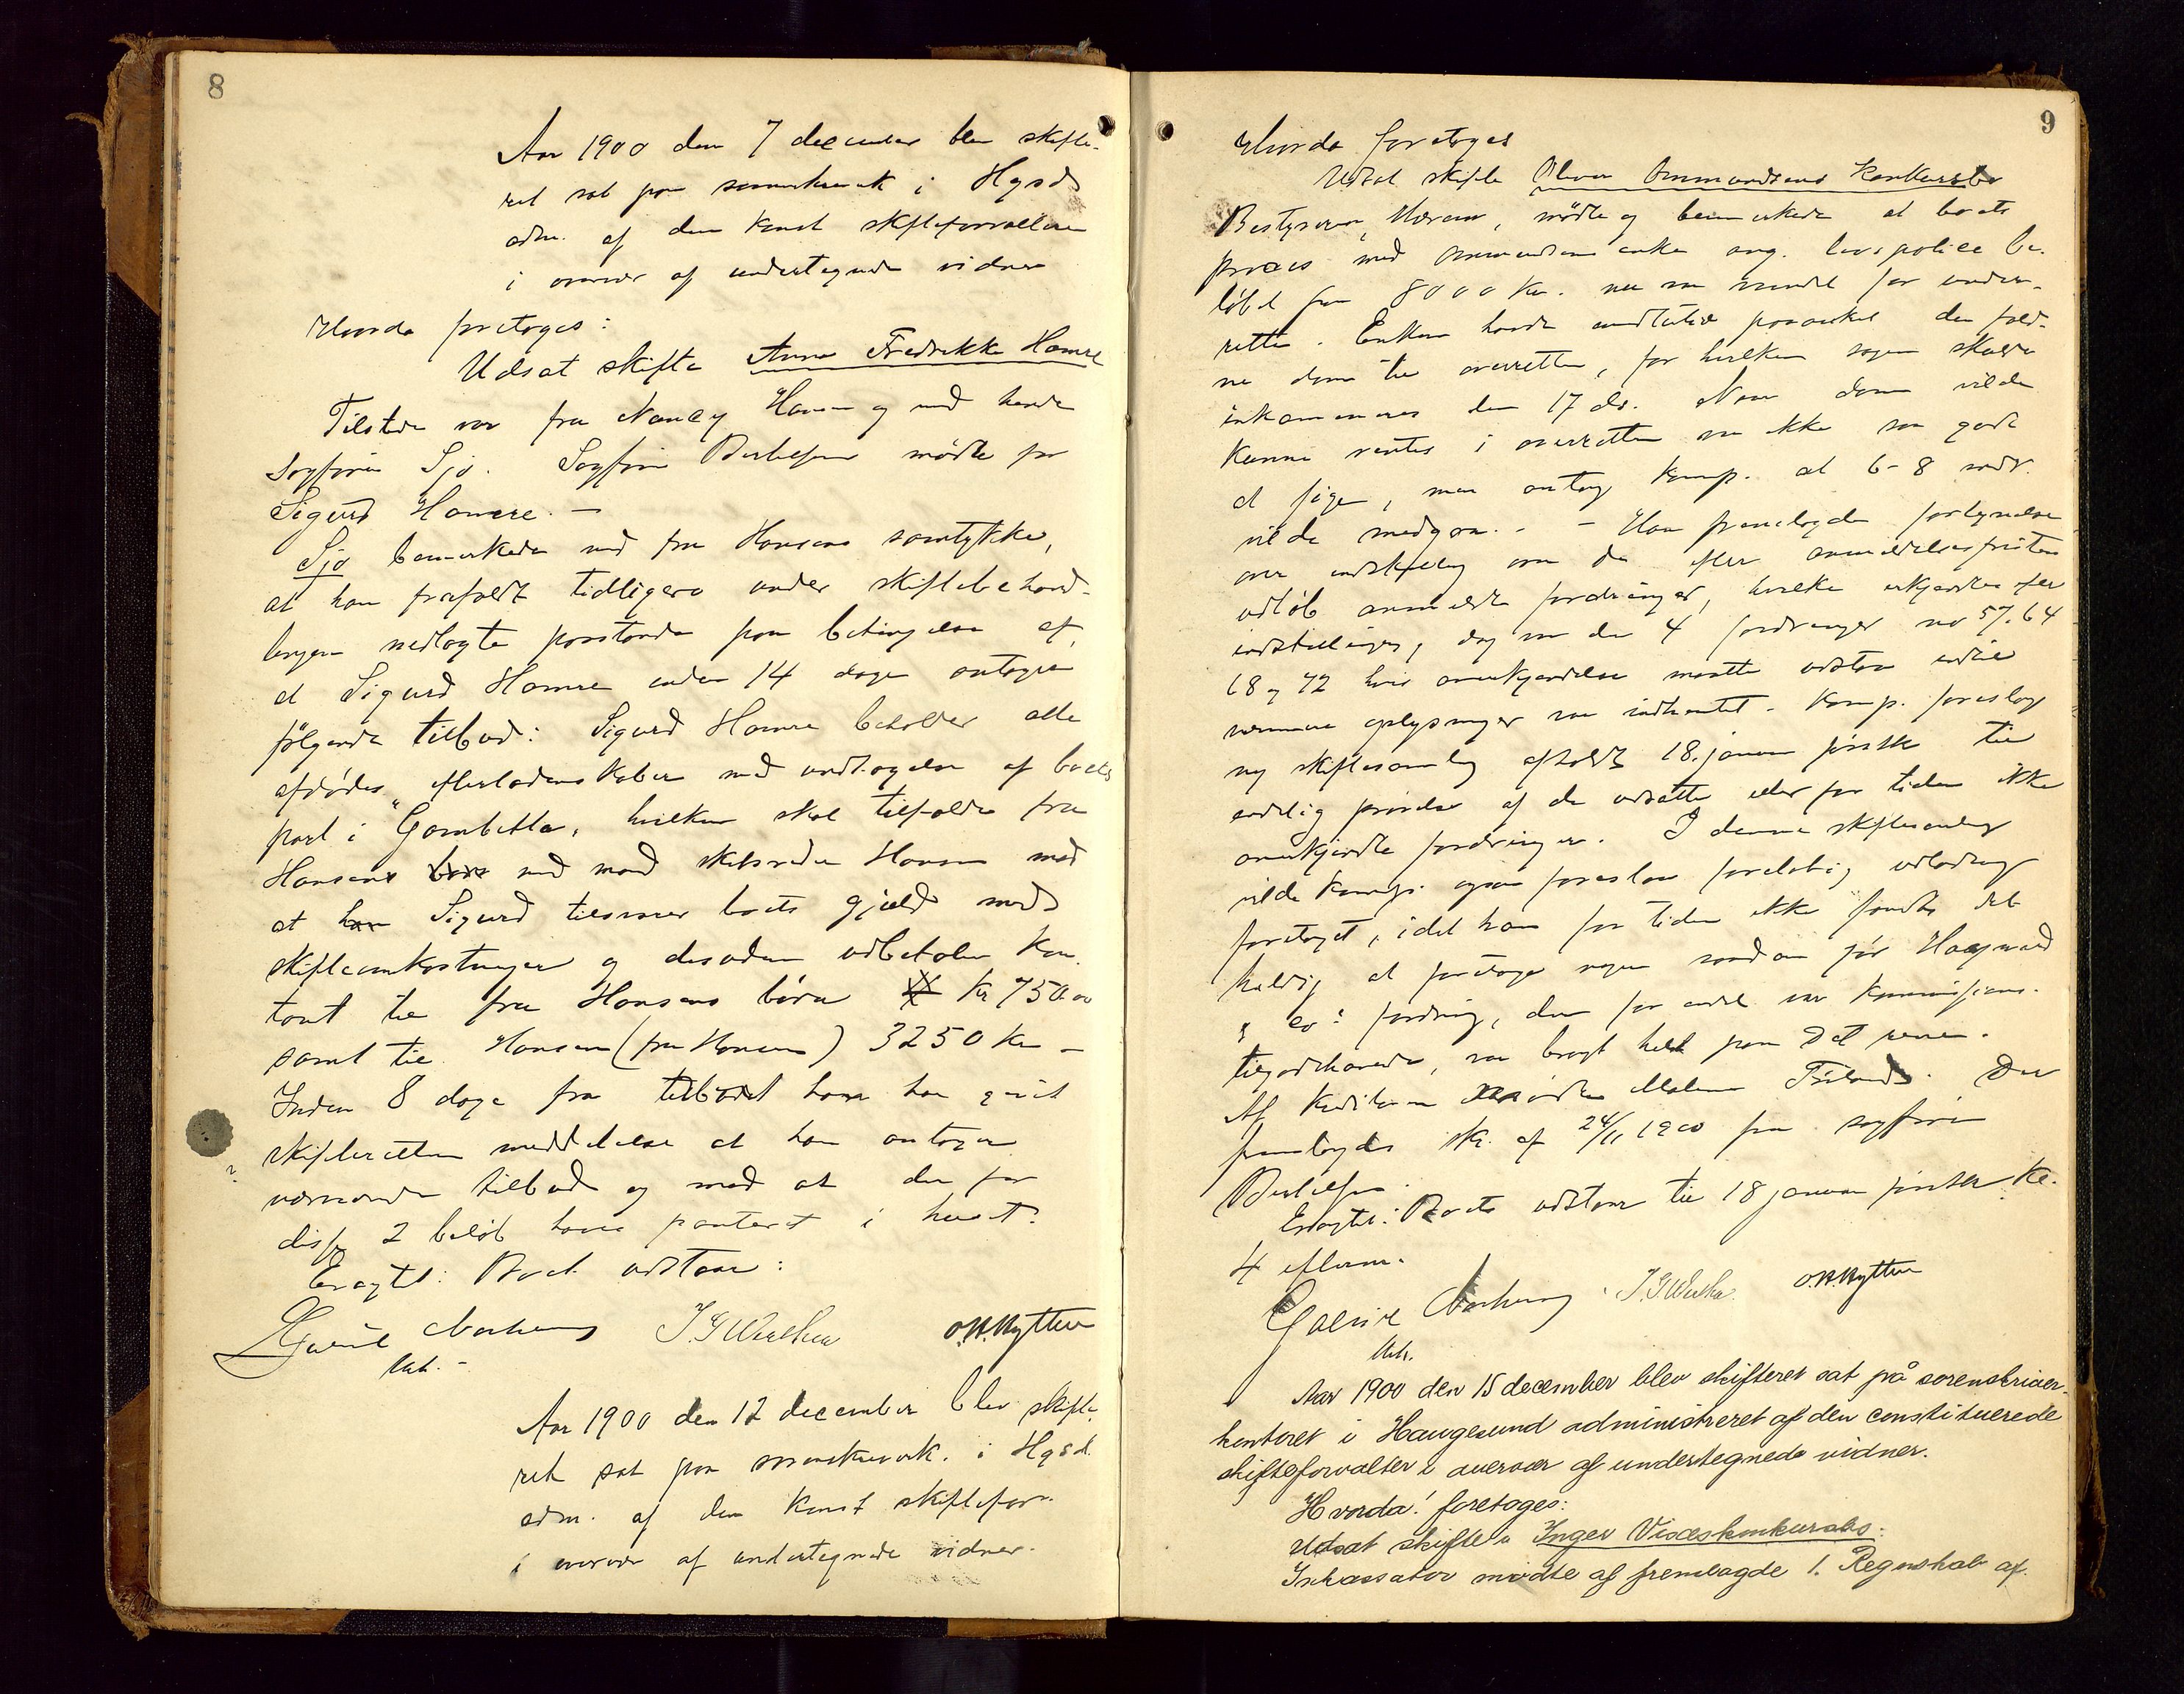 8
Aar 1900 den 7 december blev skifte-
ret sat paa sorenskrverk i Hgsd
adm. af den konst skifteforvalteren
i overvær af undertegnede vidner
Hvorda foretoges:
Udsat skifte Anna Fredrikke Hamre
Tilstede var fru Nancy Hansen og med hende
sagfører Sjø. Sagfører Bertelsen mødte for
Sigurd Hamre. -
Sjø bemærkede med fru Hansens samtykke,
at han frafaldt tidligere under skiftebehand-
lingen nedlagte paastande paa betingelse af,
at Sigurd Hamre inden 14 dage antager
følgende tilbud: Sigurd Hamre beholder alle
afdødes efterladenskaber med undtagelse af boets
part i "Gambetta", hvilken skal tilfalde fru
Hansens med mand skibsreder Hansen mod
at Sigurd tilsvarer boets gjæld med
skifteomkostninger og desuden udbetaler kon-
tant til fru Hansens børn kr 750.00
samt til Hansen (fru Hansen) 3250 kr -
Inden 8 dage fra tilbudet have han givet
skifteretten meddelelse at han antager
nærværende tilbud og med at der for
disse 2 beløb haves panteret i huset.
Eragtet: Boet udstaar:
J. G. Wathne O.H.Nyttun
kst. -
Aar 1900 den 12 december blev skifte-
ret sat paa sorenskrverk. i Hgsd.
adm. af den konst skiftefor.
i overvær af undertegnede vidner.
9
Hvorda foretoges
Udsat skifte Ommundsens konkursbo
Bestyreren, mødte og bemærkede at boets
proces med Ommundsens enke ang. livspolice be-
løbet fra 8000 kr. nu var vundet for under-
retten. Enken havde imidlertid paaanket den fald-
ne dom til overretten, for hvilken sagen skulde
inkamineres den 17 ds. Naar dom vilde
kunne ventes i overretten var ikke saa godt
at sige, man antog komp. at 6-8 mdr.
vilde medgaa. - - Han fremlagde fortegnelse
over indstilling om de efter anmeldelsesfristens
udløb anmeldte fordringer, hvilke erkjendtes efter
indstillingen, dog var der 4 fordringer no 57. 64
68 og 72 hvis anerkjendelse maatte udstaa indtil
nærmere oplysninger var indhentet. Komp. foreslog
ny skiftesamling afholdt 18. januar førstk til
endelig prøvelse af de udsatte eller for tiden ikke
anerkjendte fordringer. I denne skiftesamling
vilde komp. ogsaa foreslaa foreløbig udlodning
foretaget, idet han for tiden ikke fandt det
heldig at foretage nogen saadan før
& co's fordring, der for endel var kommissions-
tilgodehavende, var bragt helt paa det rene.
Af kreditorerne mødte Malene. Der
fremlagdes skr. af 24/11 1900 fra sagfører
Bertelsen.
Eragtet: Boet udstaar til 18 januar førstk kl.
4 efterm.
J. G. Wathne O.H.Nyttun
kst.
Aar 1900 den 15 december blev skifteret sat på sorenskriver-
kontoret i Haugesund administreret af den constituerede
skifteforvalter i overvær af undertegnede vidner.
Hvorda! foretoges:
Udsat skifte i Inger Vises konkursbo:
Inkassator mødte af fremlagde 1. Regnskab af.